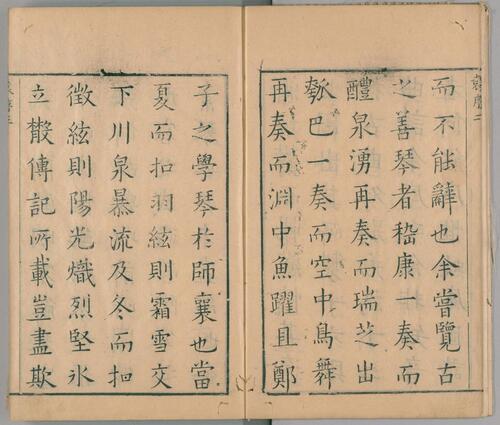 而不能辭也余嘗覽古
之善琴者嵇康一奏而
醴泉湧再奏而瑞芝出
瓠巴一奏而空中鳥舞
再奏而淵中魚躍且鄭
子之學琴於師襄也當
夏而扣羽絃則霜雪交
下川泉暴流及冬而扣
徵絃則陽光熾烈堅氷
立散傳記所載豈盡欺